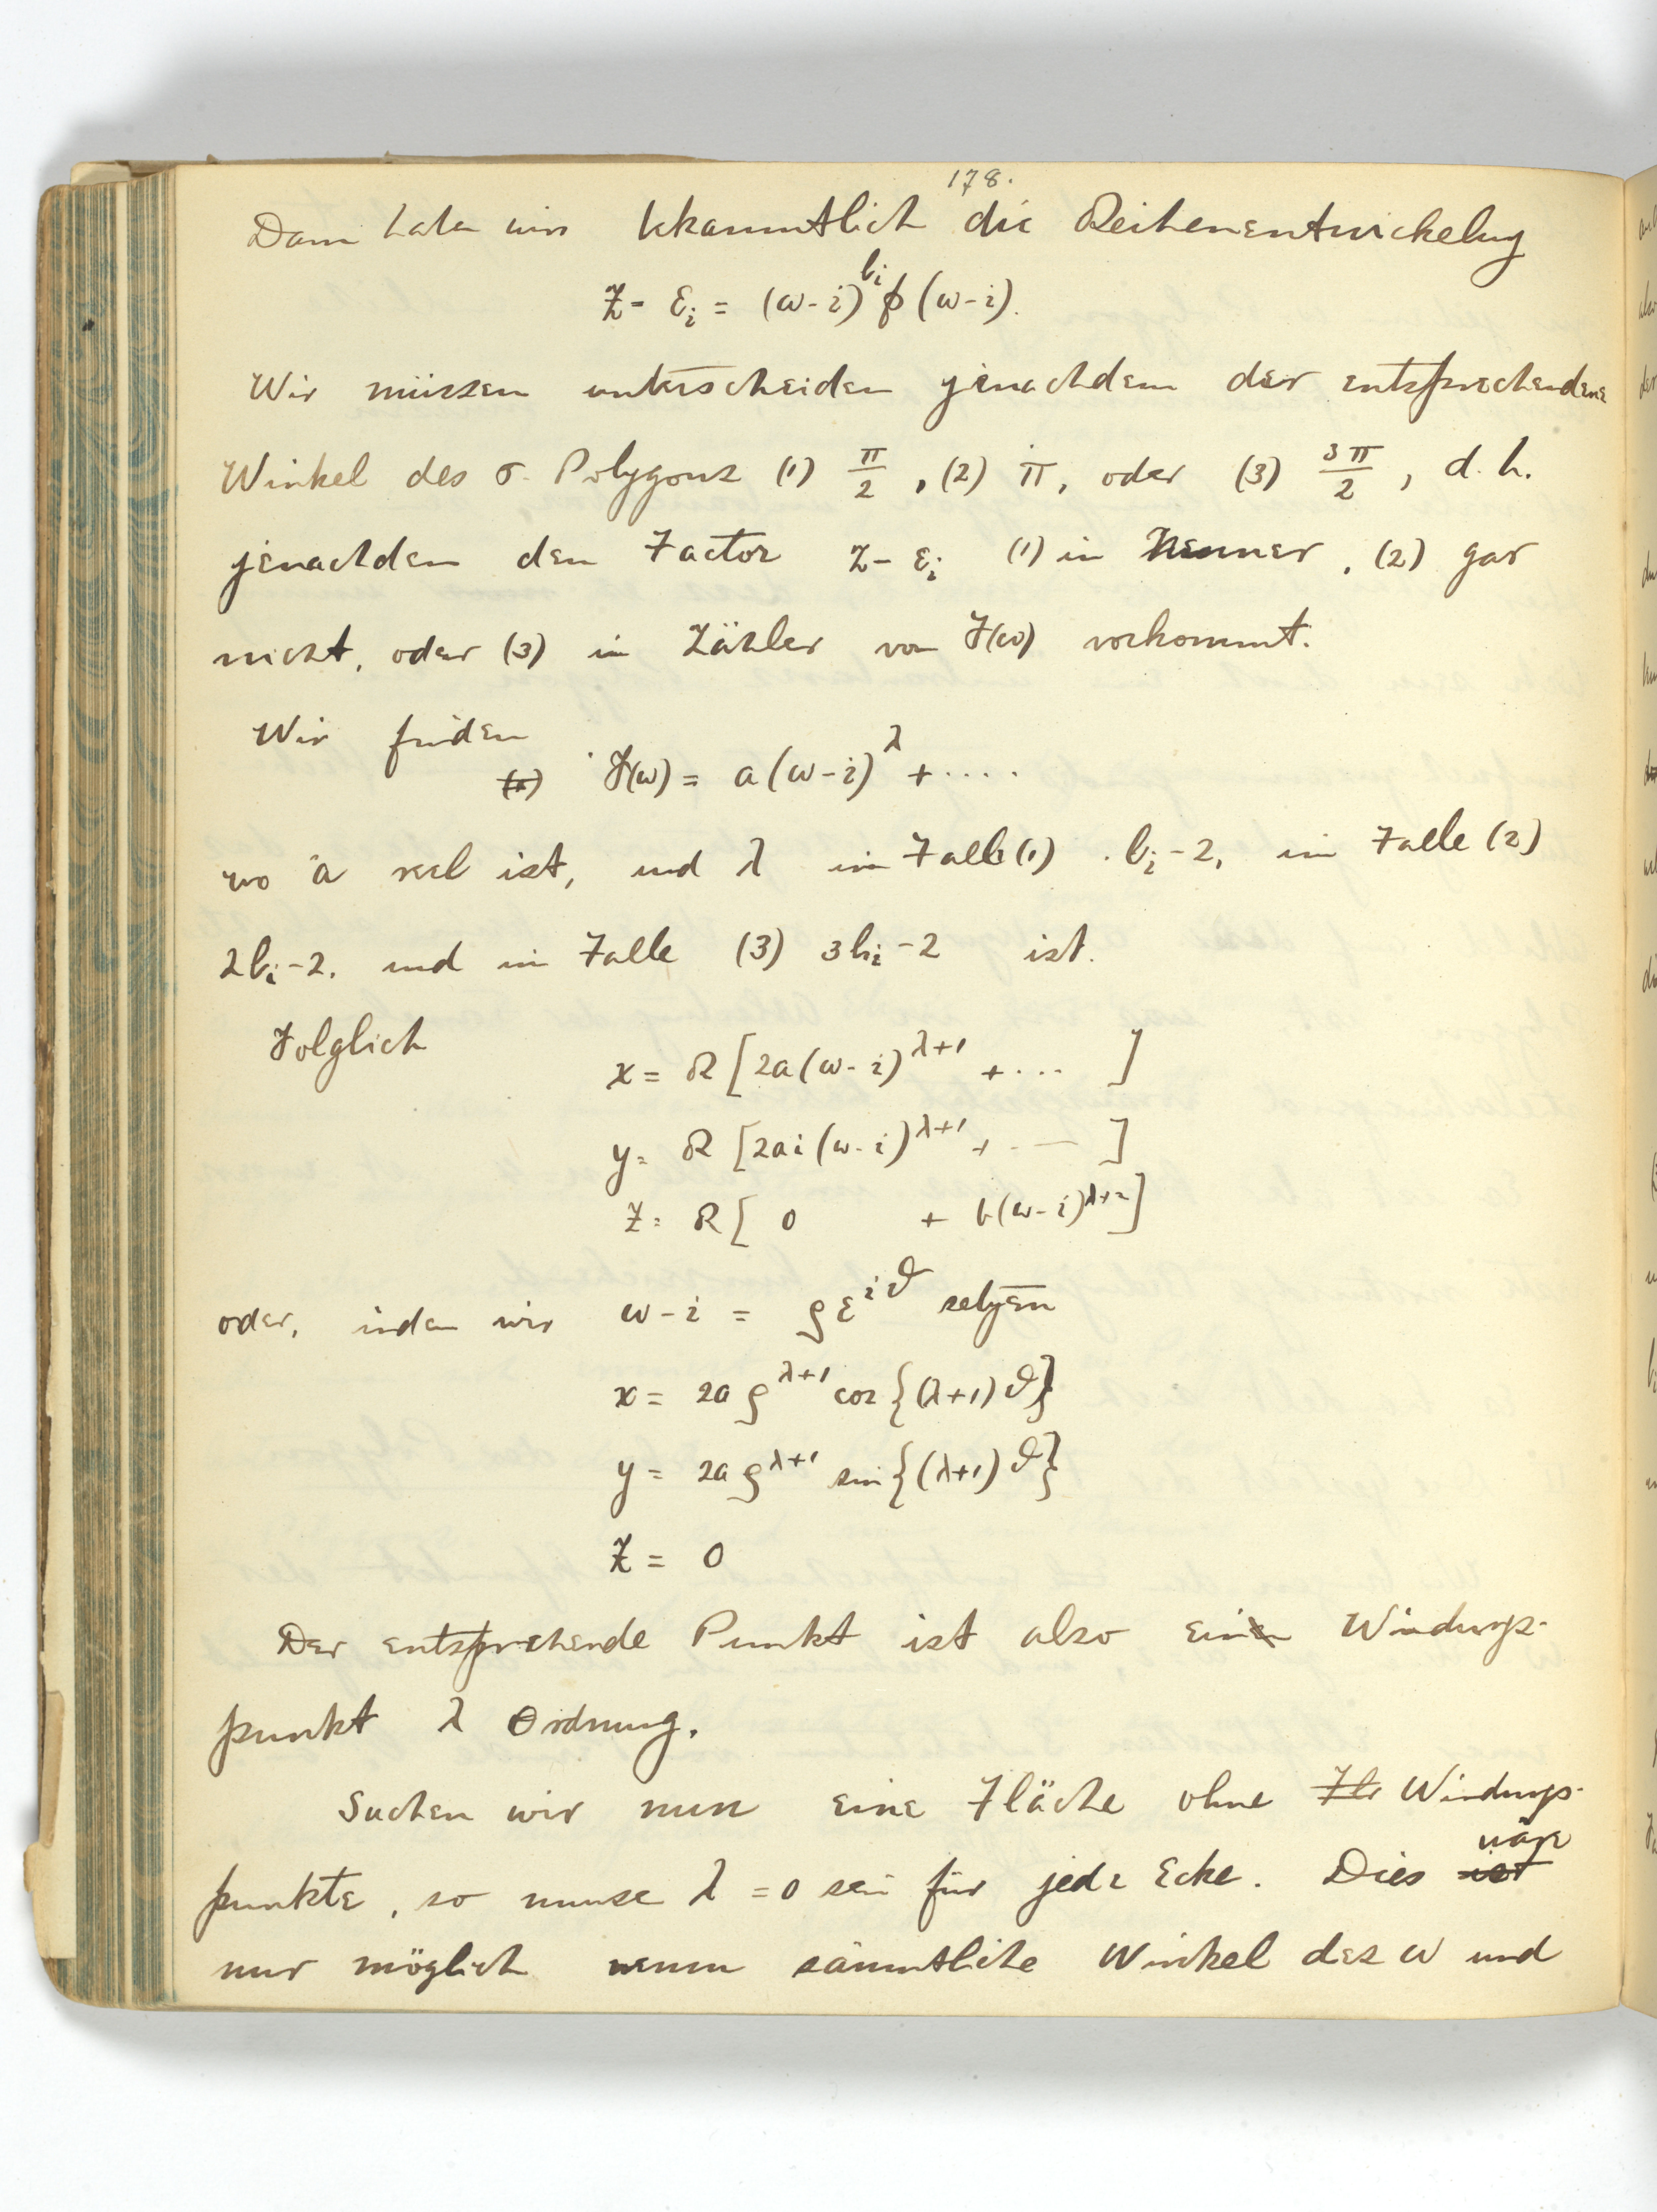 178.
Dann haben wir bekanntlich die Reihenentwickelung
z - εᵢ = (ω-i)^{bᵢ} φ(ω-i).
Wir müssen unterscheiden jenachdem der entsprechende
Winkel des σ. Polygons (1) π/2, (2) π, oder (3) 3π/2, d.h.
jenachdem den Factor z - εᵢ (1) in Nenner, (2) gar
nicht, oder (3) in Zähler von F(ω) vorkommt.
Wir finden
F(ω) = a(ω-i)^λ + ....
wo a reel ist, und λ im Falle (1) bᵢ-2, im Falle (2)
2bᵢ-2, und im Falle (3) 3bᵢ-2 ist.
Folglich
x = R [2a(ω-i)^{λ+1} + ... ]
y = R [2ai(ω-i)^{λ+1} + ... ]
z = R [ 0 + b(ω-i)^{λ+2}]
oder, indem wir ω-i = ρε^{iϑ} setzen
x = 2aρ^{λ+1} cos{(λ+1)ϑ}
y = 2aρ^{λ+1} sin{(λ+1)ϑ}
z = 0
Der entsprechende Punkt ist also ein Windungs-
punkt λ Ordnung.
Suchen wir nun eine Fläche ohne Windungs-
punkte, so muss λ = 0 sein für jede Ecke. Dies wäre
nur möglich wenn sämmtliche Winkel des ω und